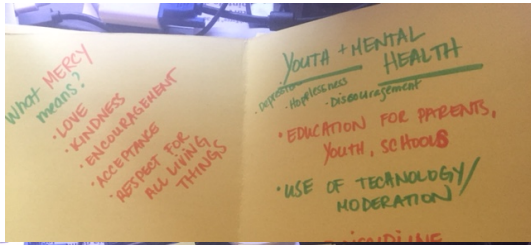 What MERCY
means?
• LOVE
• KINDNESS
• ENCOURAGEMENT
• ACCEPTANCE
• RESPECT FOR
ALL LIVING
THINGS
YOUTH + MENTAL
HEALTH
• Depression
• Hopelessness
• Discouragement
• EDUCATION FOR PARENTS,
YOUTH, SCHOOLS
• USE OF TECHNOLOGY/
MODERATION